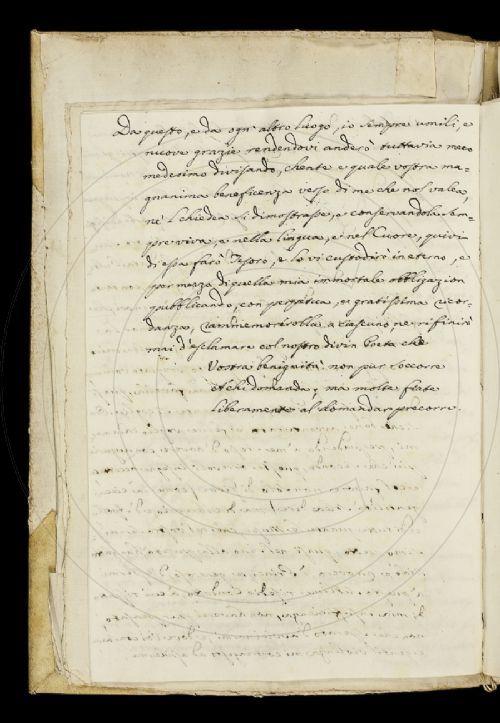 Da questo, e da ogn' altro luogo, io sempre umili, e
nuove grazie rendendovi anderò tuttavia meco
medesimo divisando, chente e quale vostra ma=
gnanima beneficenza verso di me che nol valea,
nè 'l chiedea si dimostrasse, e conservandola sem=
pre viva, e nella lingua, e nel Cuore, quivi
di essa farò Tesoro, e lo vi custodirò in eterno, e
per mezzo di quella mia immortale obbligazion
pubblicando, con perpetua, e gratissima ricor=
danza, rammemorerolla a ciascuno nè rifinirò
mai d'esclamare col nostro divin Poeta che
Vostra benignità non pur soccorre
A chi domanda, ma molte fiate
Liberamente al domandar precorre.